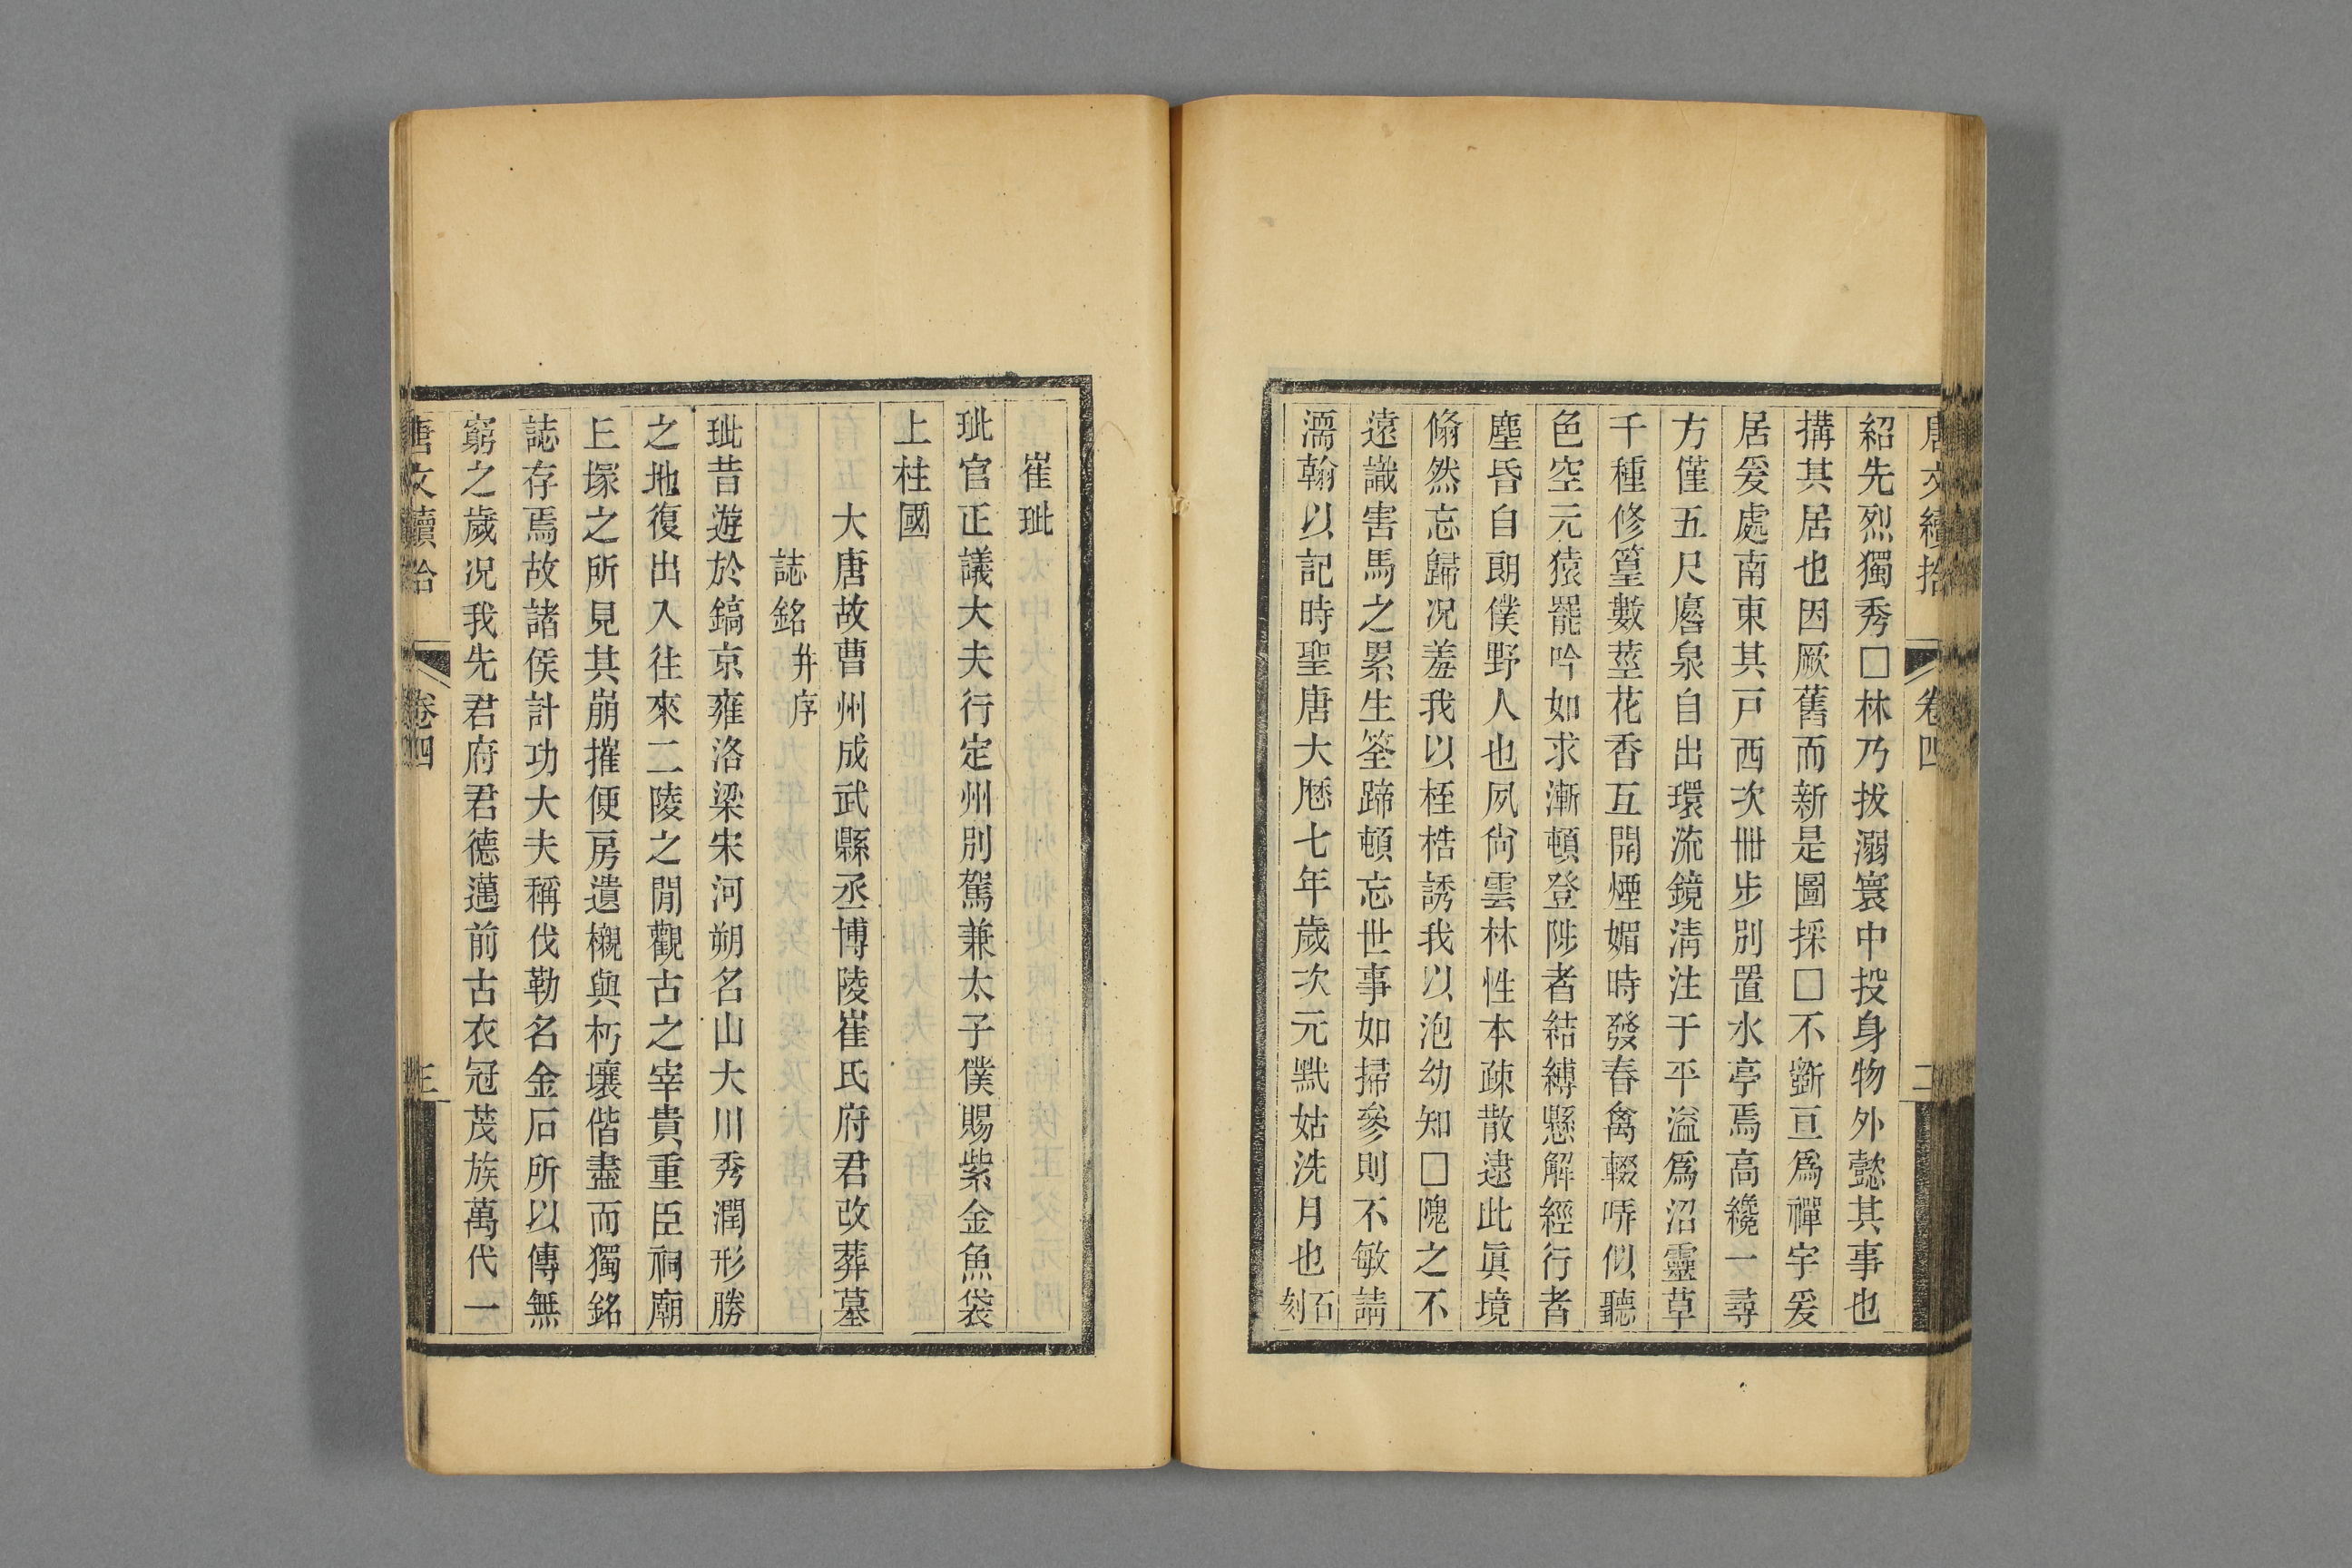 唐文續拾 卷四 二
紹先烈獨秀□林乃拔溺寰中投身物外懿其事也
搆其居也因厥舊而新是圖採□不斵亘爲禪宇爰
居爰處南東其戸西次卌步別置水亭焉高纔一尋
方僅五尺廗泉自出環流鏡清注于平溢爲沼靈草
千種修篁數莖花香互開煙媚時發春禽輟哢似聽
色空元猿罷吟如求漸頓登陟者結縛懸解經行者
塵昏自朗僕野人也夙尙雲林性本疎散逮此眞境
翛然忘歸况羞我以桎梏誘我以泡幼知□隗之不
遠識害馬之累生筌蹄頓忘世事如掃參則不敏請
濡翰以記時聖唐大歷七年歲次元黓姑洗月也石刻
崔玼
玼官正議大夫行定州別駕兼太子僕賜紫金魚袋
上柱國
大唐故曹州成武縣丞博陵崔氏府君改葬墓
誌銘幷序
玼昔遊於鎬京雍洛梁宋河朔名山大川秀潤形勝
之地復出入往來二陵之閒觀古之宰貴重臣祠廟
上塚之所見其崩摧便房遺櫬與朽壤偕盡而獨銘
誌存焉故諸侯計功大夫稱伐勒名金石所以傳無
窮之歲况我先君府君德邁前古衣冠茂族萬代一
唐文續拾 卷四 三